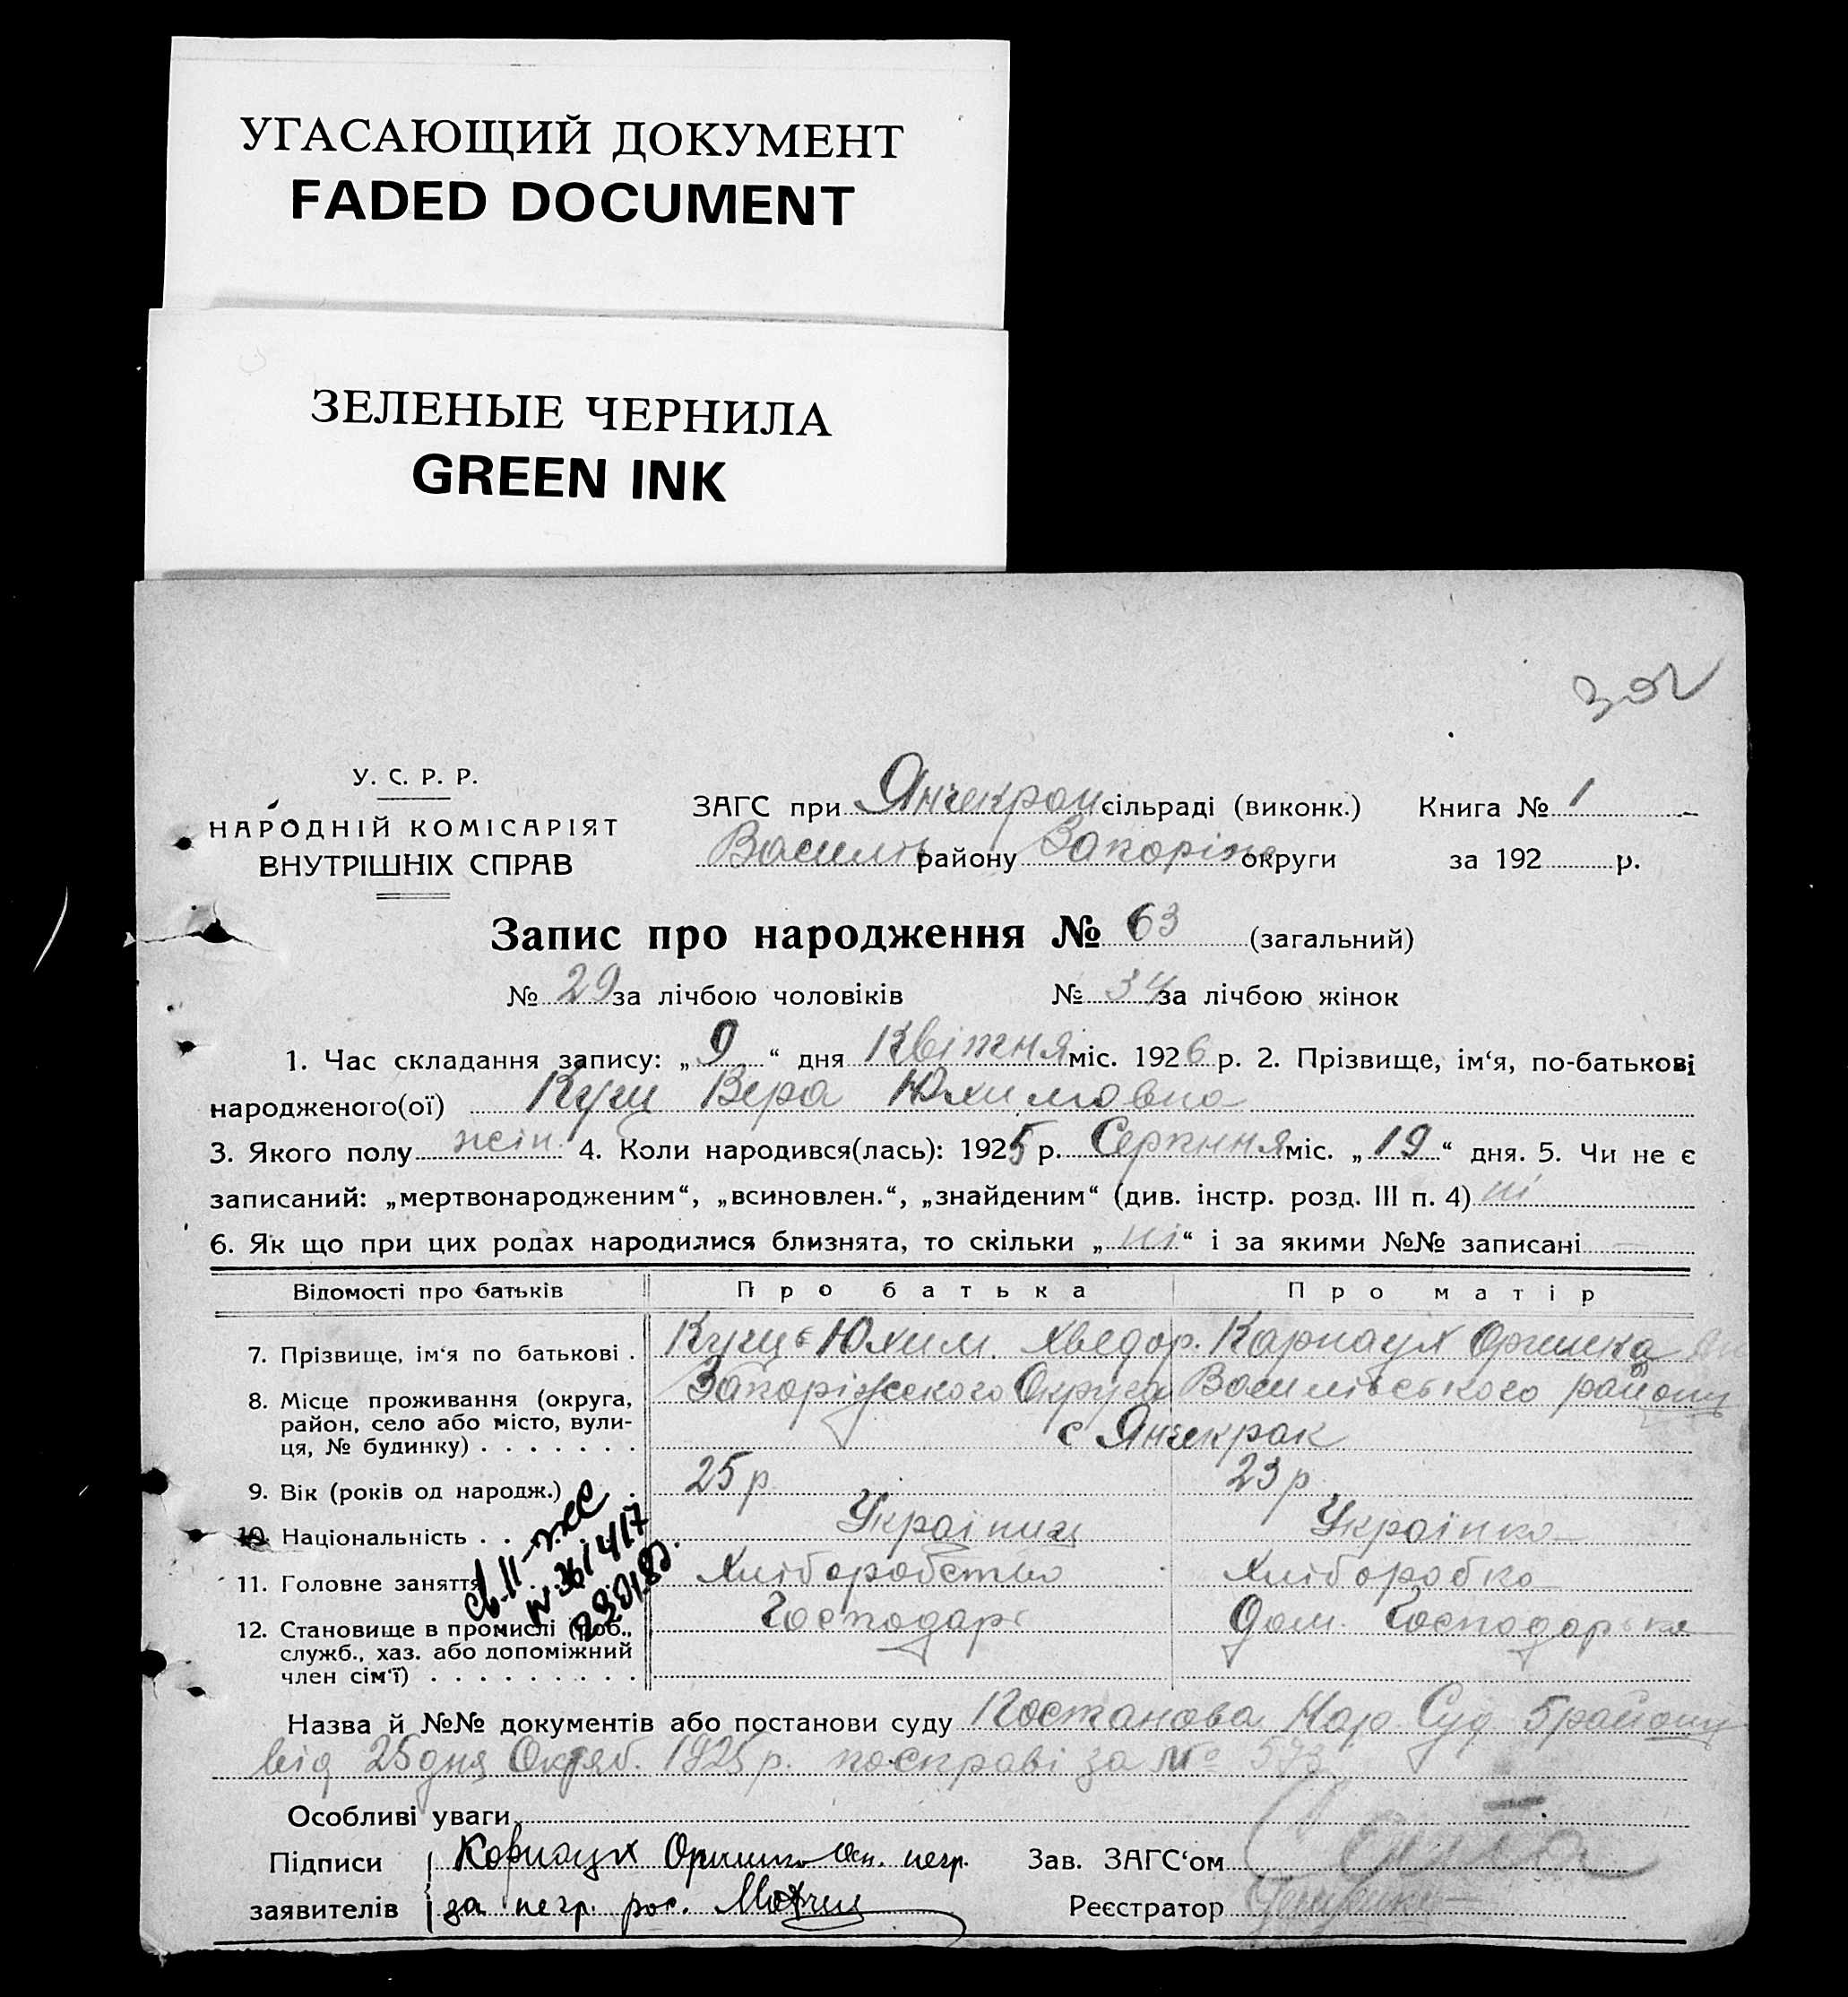 УГАСАЮЩИЙ ДОКУМЕНТ
FADED DOCUMENT
ЗЕЛЕНЫЕ ЧЕРНИЛА
GREEN INK
У. С. Р. Р.
НАРОДНІЙ КОМІСАРІЯТ
ВНУТРІШНІХ СПРАВ
ЗАГС при Янчекрак сільраді (виконк.) Книга № 1
Василів району Запоріж округи за 192 р.
Запис про народження № 63 (загальний)
№ 29 за лічбою чоловіків № 34 за лічбою жінок
1. Час складання запису: „ 9 “ дня Квітня міс. 1926 р. 2. Прізвище, ім‘я, по-батькові
народженого(ої) Куц Вера Юхимовна
3. Якого полу жін. 4. Коли народився(лась): 1925 р. Серпння міс. „ 19 “ дня. 5. Чи не є
записаний: „мертвонародженим“, „всиновлен.“, „знайденим“ (див. інстр. розд. III п. 4) ні
6. Як що при цих родах народилися близнята, то скільки „ ні “ і за якими №№ записані —
Відомості про батьків Про батька Про матір
7. Прізвище, ім‘я по батькові . Куць Юхим. Хведор. Карнаух Оришка
8. Місце проживання (округа, район, село або місто, вули-ця, № будинку) . . . . . . . Запоріжского Округа Василівського району
с Янчекрак
9. Вік (років од народж.) . 25 р. 23 р.
10. Національність . . Украіниц Украінка
11. Головне заняття Хліборобство Хлібооробка
12. Становище в промислі (роб., служб., хаз. або допоміжний член сім‘ї) . . . . . . . . . Господарь Дом. Господарька
№ 361417
Назва й №№ документів або постанови суду Постанова Нар. Суд 5 району
від 25 дня Октяб. 1925 р. посправі за № 593
Особливі уваги
Підписи Карнаух Оришка негр. Зав. ЗАГС‘ом
заявителів за негр. рос. Реєстратор